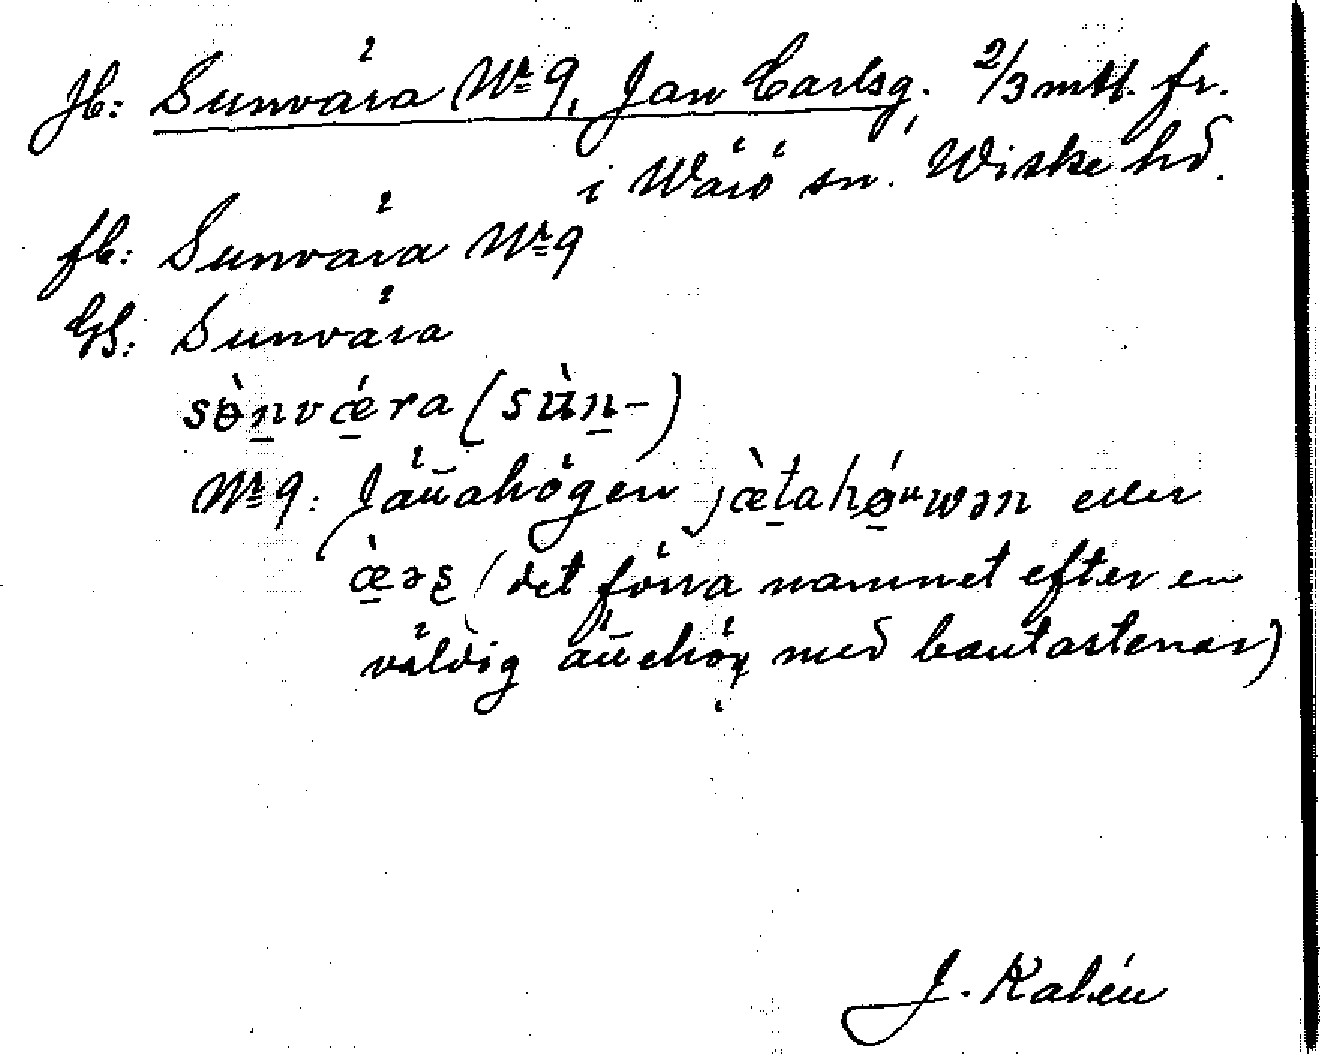 Jb: Sunvära Nr 9, Jan Carlsg. 2/3 mtl. fr.
i Värö sn. Wiske hd.
fb: Sunvära Nr 9
GS: Sunvära
sɵ̀nvǽra (sùn-)
Nr 9: Jättahögen jæ̀tahǿuwən eller
æ̀əʂ (det förra namnet efter en
väldig ättehög med bautastenar)
J. Kalén